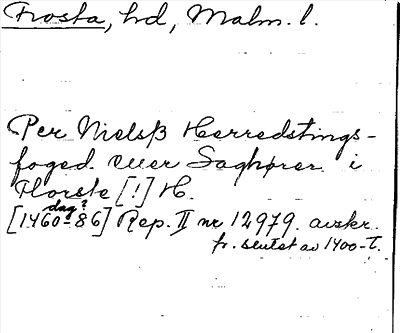 Frosta, hd, Malm. l.
Per Nielsß Herredstings-
foged. eller Saghører i
Florste [!] H.
dag?
[1460-86] Rep. II nr 12979. avskr.
fr. slutet av 1400-t.